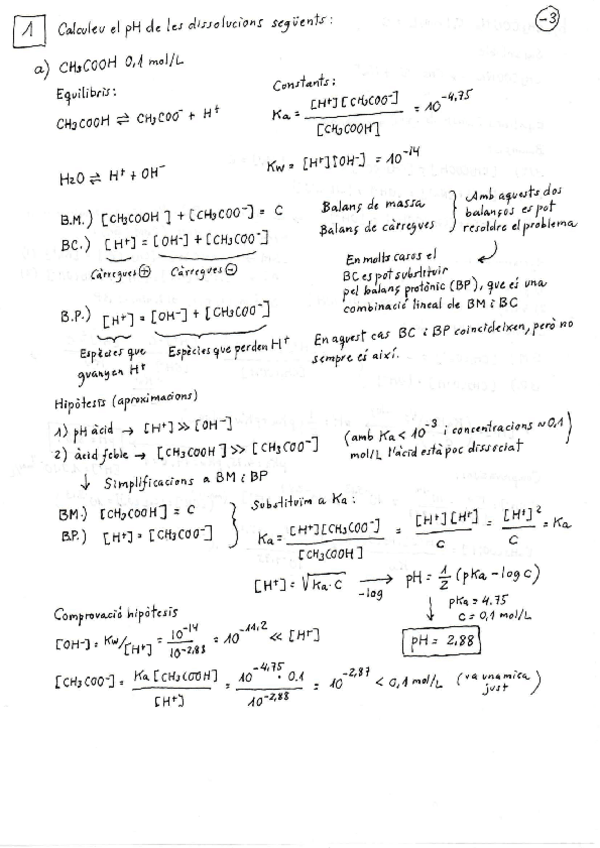 -3
1 Calculeu el pH de les dissolucions següents:
a) CH3COOH 0,1 mol/L
Equilibris:
Constants:
CH3COOH ⇌ CH3COO⁻ + H⁺
Ka = [H⁺][CH3COO⁻] / [CH3COOH] = 10^-4,75
H2O ⇌ H⁺ + OH⁻
Kw = [H⁺][OH⁻] = 10^-14
B.M.) [CH3COOH] + [CH3COO⁻] = C
Balanç de massa
BC.) [H⁺] = [OH⁻] + [CH3COO⁻]
Balanç de càrregues
Càrregues ⊕ Càrregues ⊖
Amb aquests dos
balanços es pot
resoldre el problema
En molts casos el
BC es pot substituir
pel balanç protònic (BP), que és una
combinació lineal de BM i BC
B.P.) [H⁺] = [OH⁻] + [CH3COO⁻]
Espècies que
guanyen H⁺
Espècies que perden H⁺
En aquest cas BC i BP coincideixen, però no
sempre és així.
Hipòtesis (aproximacions)
1) pH àcid → [H⁺] ≫ [OH⁻]
2) àcid feble → [CH3COOH] ≫ [CH3COO⁻]
(amb Ka < 10^-3 i concentracions ~ 0,1
mol/L l'àcid està poc dissociat)
↓ Simplificacions a BM i BP
BM.) [CH3COOH] = C
BP.) [H⁺] = [CH3COO⁻]
Substituïm a Ka:
Ka = [H⁺][CH3COO⁻] / [CH3COOH] = [H⁺][H⁺] / C = [H⁺]² / C = Ka
[H⁺] = √Ka·C → -log pH = 1/2 (pKa - log C)
↓ pKa = 4.75
C = 0,1 mol/L
pH = 2,88
Comprovació hipòtesis
[OH⁻] = Kw/[H⁺] = 10^-14 / 10^-2,88 = 10^-11,2 ≪ [H⁺]
[CH3COO⁻] = Ka [CH3COOH] / [H⁺] = 10^-4,75 · 0.1 / 10^-2,88 = 10^-2,87 < 0,1 mol/L (va una mica
just)